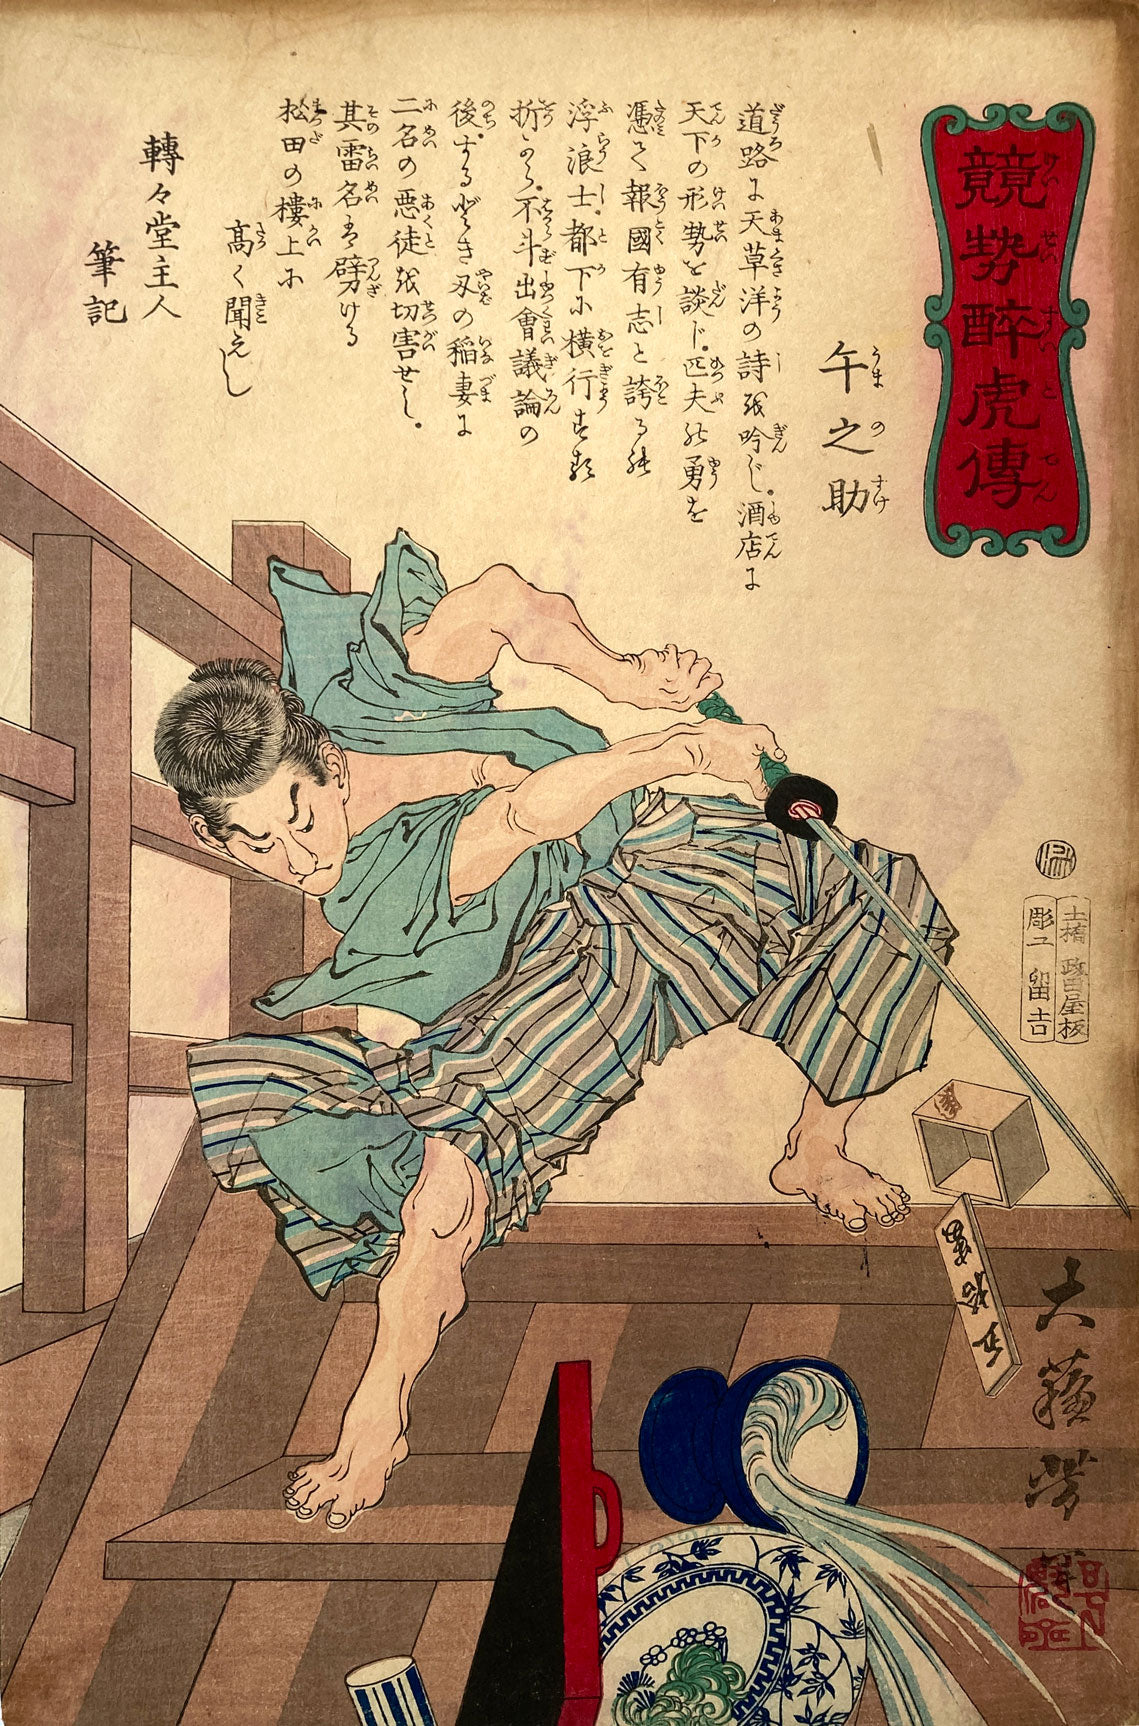 競勢酔虎傳
けいせいすいこでん
午之助
うまのすけ
道路に天草洋の詩を吟じ。酒店に
天下の形勢を談ド。匹夫の勇を
憑て報國有志と誇る
浮浪士。都下に横行する
折から。不斗出會議論の
後。する刃の稲妻に
二名の悪徒を切害せし。
其雷名は劈ける
松田の樓上に
高く聞えし
轉々堂主人
筆記
政田屋板
彫工 留吉
大蘇芳年